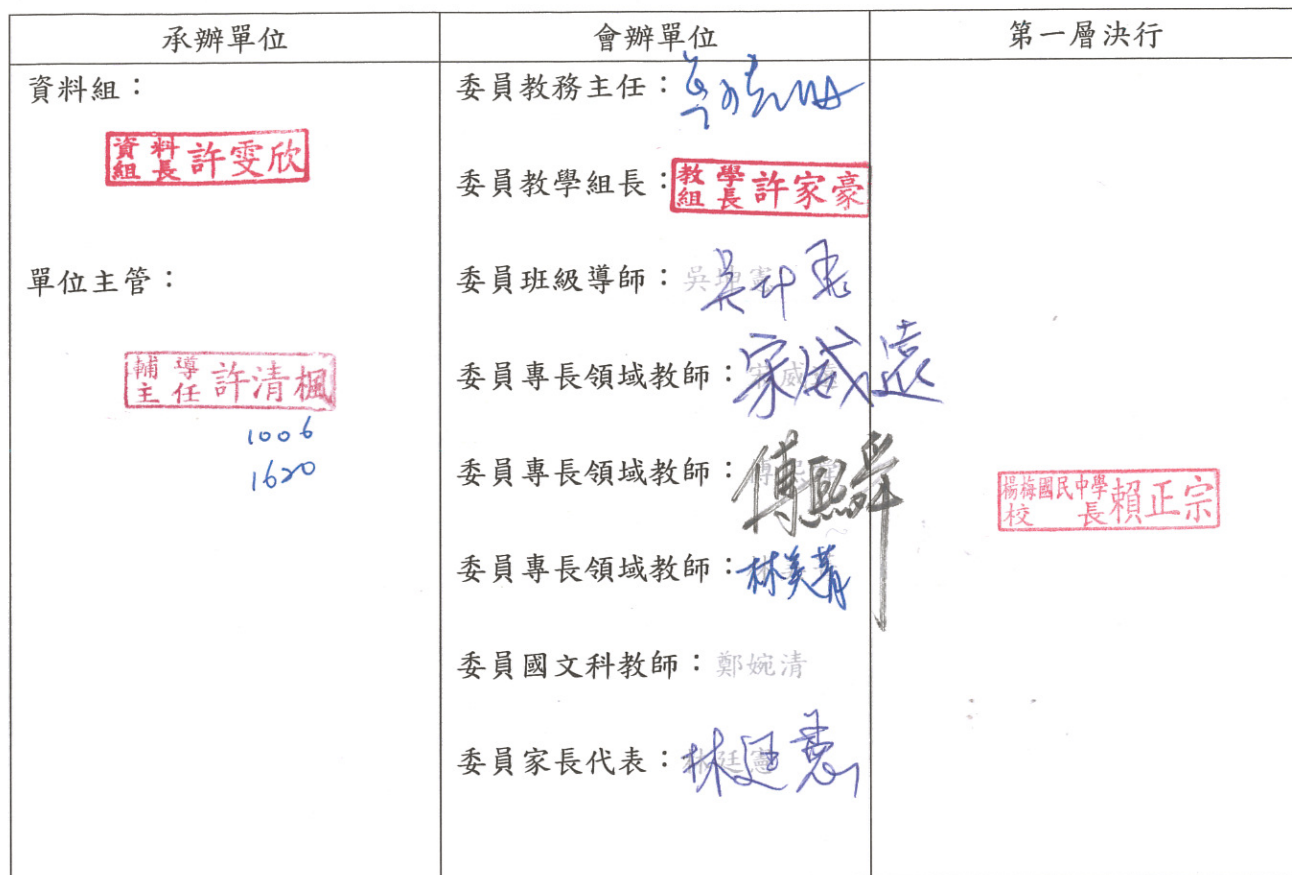 承辦單位
會辦單位
第一層決行
資料組：
資料組長 許雯欣
單位主管：
輔導主任 許清楓
1006
1620
委員教務主任：
委員教學組長：教學組長 許家豪
委員班級導師：吳坤憲
委員專長領域教師：宋威遠
委員專長領域教師：傅熙舜
委員專長領域教師：林美菁
委員國文科教師：鄭婉清
委員家長代表：林廷憲
楊梅國民中學校長 賴正宗